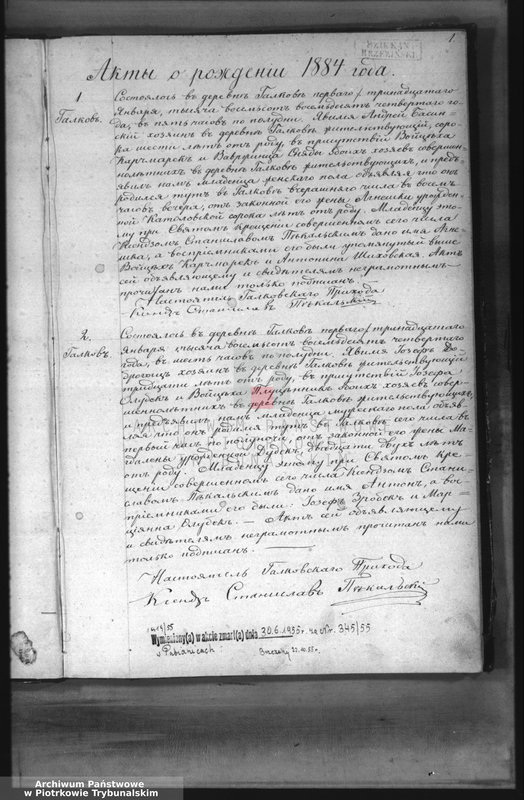 1
DZIEKAN BRZEZIŃSKI
Акты о рожденіи 1884 года.
1
Галковъ.
Состоялось въ деревнѣ Галковѣ перваго/тринадцатаго
Января, тысяча восемьсотъ восемьдесятъ четвертаго го-
да, въ пять часовъ по полудни. Явился Андрей
хозяинъ въ деревнѣ Галковѣ жительствующій, соро-
ка шести лѣтъ отъ роду, въ присутствіи Войцѣха
Карчмарекъ и Лаврентія обоихъ хозяевъ совершен-
нолѣтнихъ въ деревнѣ Галковѣ жительствующихъ, и предъ-
явилъ намъ младенца женскаго пола объявляя что онъ
родился тутъ въ Галковѣ вчерашняго числа въ восемь
часовъ вечера, отъ законной его жены Агнешки урожден-
ной сорока лѣтъ отъ роду. Младенцу это-
му при Святомъ Крещеніи совершенномъ сего числа
Ксендзомъ Станиславомъ Пѣкальскимъ дано имя Агне-
шка, а воспріемниками его были упомянутый выше
Войцѣхъ Карчмарекъ и Антонина Актъ
сей объявляющему и свидѣтелямъ неграмотнымъ
прочитанъ нами только подписанъ.
Настоятель Галковскаго Прихода
Ксендзъ Станиславъ Пѣкальскій
2.
Галковъ.
Состоялось въ деревнѣ Галковѣ перваго/тринадцатаго
Января тысяча восемьсотъ восемьдесятъ четвертаго
года, въ шесть часовъ по полудни. Явился Іозефъ
хозяинъ въ деревнѣ Галковѣ жительствующій
тридцати лѣтъ отъ роду, въ присутствіи Іозефа
и Войцѣха обоихъ хозяевъ совер-
шеннолѣтнихъ въ деревнѣ Галковѣ жительствующихъ,
и предъявилъ намъ младенца мужескаго пола объяв-
ляя что онъ родился тутъ въ Галковѣ сего числа въ
первый часъ по полуночи, отъ законной его жены Ма-
гдалены урожденной Дудекъ, двадцати двухъ лѣтъ
отъ роду. Младенцу этому при Святомъ Кре-
щеніи совершенномъ сего числа Ксендзомъ Стани-
славомъ Пѣкальскимъ дано имя Антонъ, а вос-
пріемниками его были: Іозефъ и Мар-
ціянна Актъ сей объявляющему
и свидѣтелямъ неграмотнымъ прочитанъ нами
только подписанъ.
Настоятель Галковскаго Прихода
Ксендзъ Станиславъ Пѣкальскій
Wymieniony(a) w akcie zmarł(a) dnia 30.6.1955 r. za Nr. 345/55
w Pabianicach:
Archiwum Państwowe
w Piotrkowie Trybunalskim